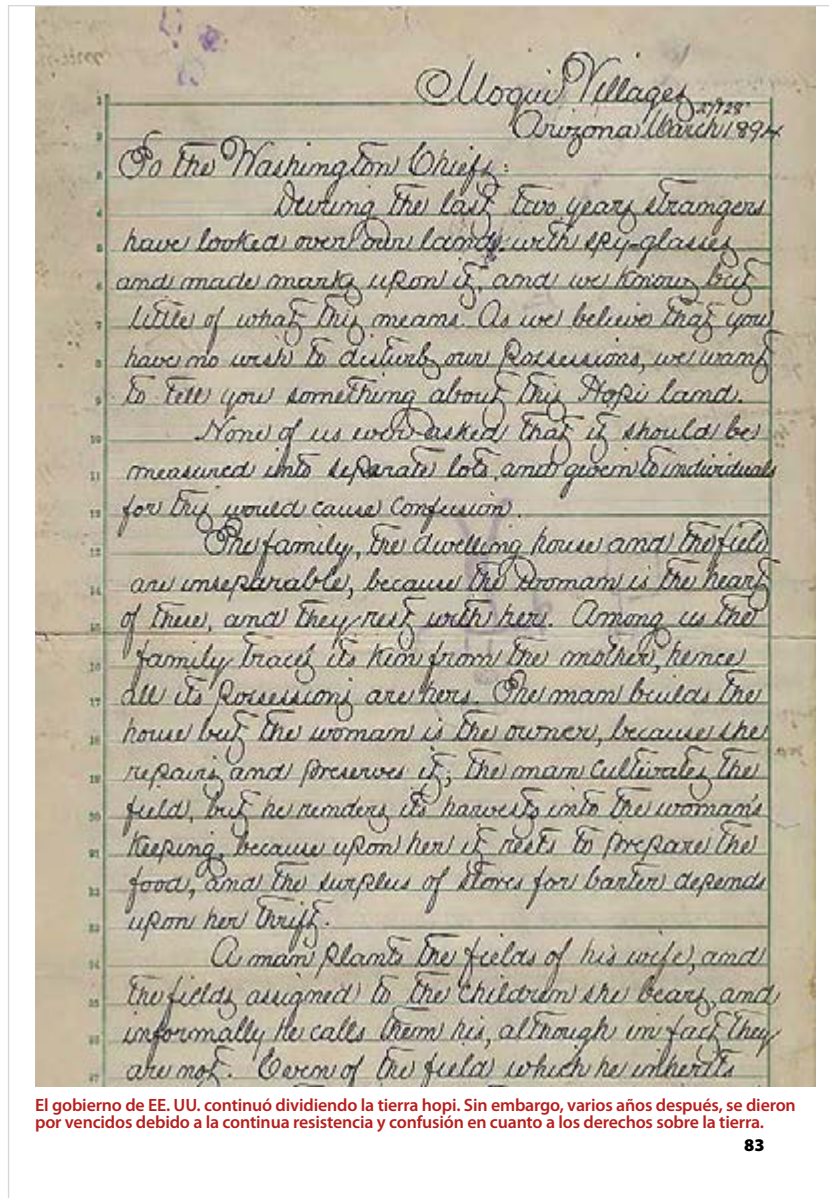 Moqui Villages
Arizona March 1894
To the Washington Chiefs:
During the last two years strangers
have looked over our lands with spy-glasses
and made marks upon it, and we know but
little of what this means. As we believe that you
have no wish to disturb our Possessions, we want
to tell you something about this Hopi land.
None of us ever asked that it should be
measured into separate lots, and given to individuals
for this would cause confusion.
The family, the dwelling house and the field
are inseparable, because the woman is the heart
of these, and they rest with her. Among us the
family traces its kin from the mother, hence
all its possessions are hers. The man builds the
house but the woman is the owner, because she
repairs and preserves it; the man cultivates the
field, but he renders its harvests into the woman's
keeping, because upon her it rests to prepare the
food, and the surplus of stores for barter depends
upon her thrift.
A man plants the fields of his wife, and
the fields assigned to the children she bears, and
informally he calls them his, although in fact they
are not. Even of the field which he inherits
El gobierno de EE. UU. continuó dividiendo la tierra hopi. Sin embargo, varios años después, se dieron
por vencidos debido a la continua resistencia y confusión en cuanto a los derechos sobre la tierra.
83